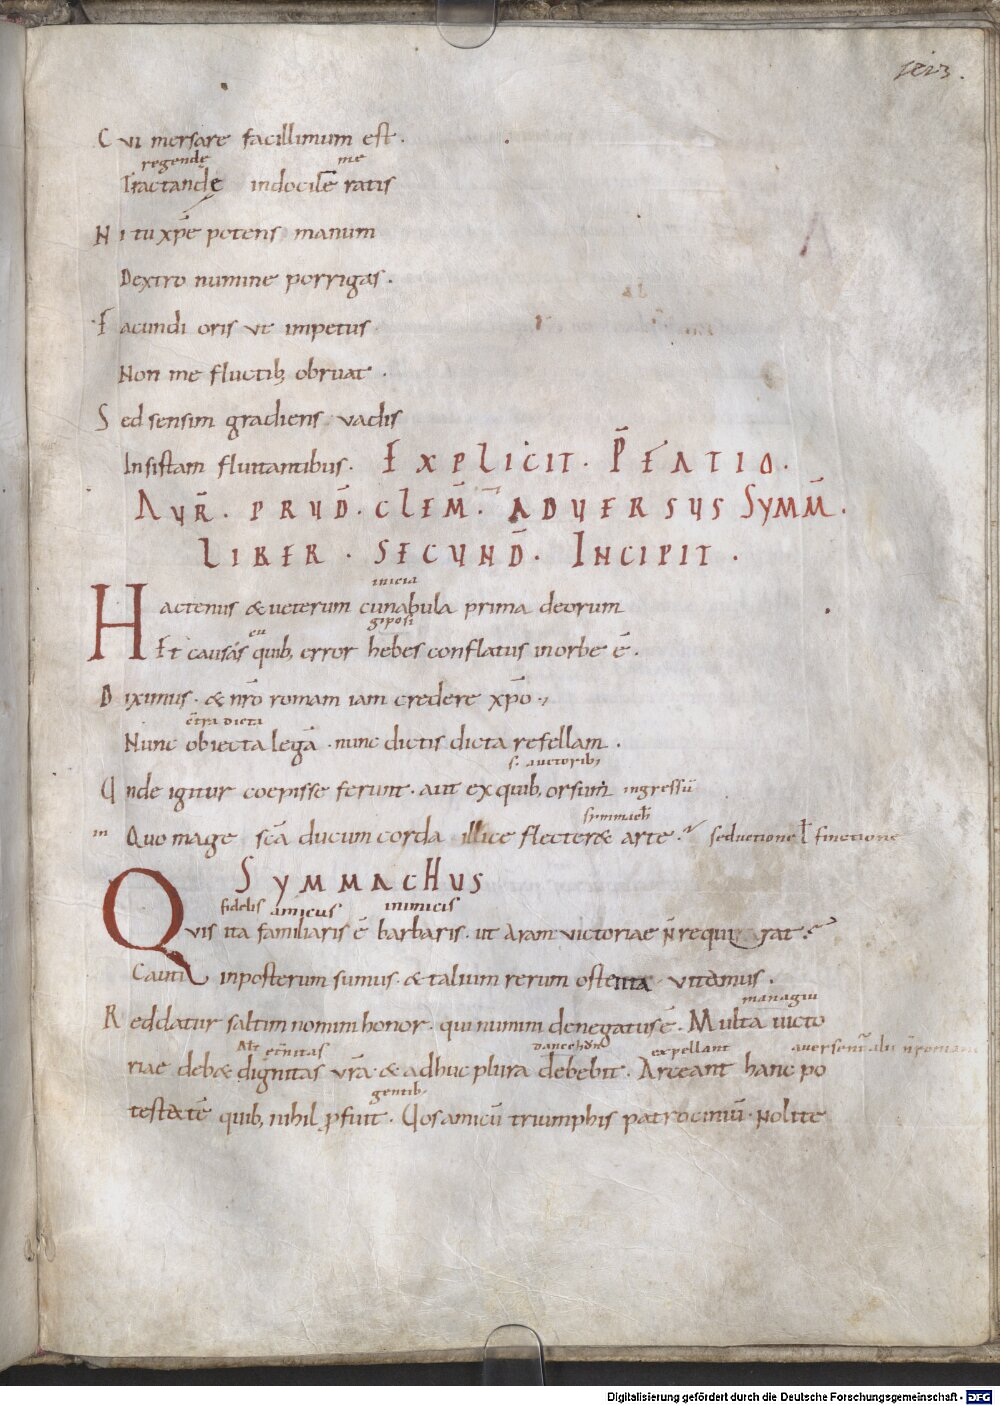 Cui mersare facillimum est.
regendę me
Tractandę indocilē ratis
Ni tu xp̄e potens manum
Dextro numine porrigas.
Facundi oris ut impetus
Non me fluctib; obruat.
Sed sensim gradiens vadis
Insistam fluitantibus. EXPLICIT. P̄FATIO.
AUR̄. PRUD̄. CLEM̄. ADUERSUS SYMM̄.
LIBER. SECUND̄. INCIPIT.
inicia
Hactenus & ueterum cunabula prima deorum
giposi
eu
Et causas quib; error hebes conflatus inorbe ē.
Diximus. & nr̄o romam iam credere xp̄o.
c̄tra dicta
Nunc obiecta legā. nunc dictis dicta refellam.
s. auctorib;
Unde igitur coepisse ferunt. aut ex quib; orsum ingressū
symmach
in Quo mage sc̄a ducum corda illice flectere arte. seductione ł finctione
SYMMACHUS
fidelis amicus inimicis
Quis ita familiaris ē barbaris. ut aram victoriae n̄ requirat.
Cauti inposterum sumus. & talium rerum ostenta vitamus.
managiu
Reddatur saltim nomini honor. qui numini denegatus ē. Multa uicto
expellant
riae deb& dignitas vr̄a. & adhuc plura debebit. Arceant hanc po
gentib;
testatē quib; nihil pfuit. Uos amicū triumphis patrociniū. nolite
Digitalisierung gefördert durch die Deutsche Forschungsgemeinschaft - DFG